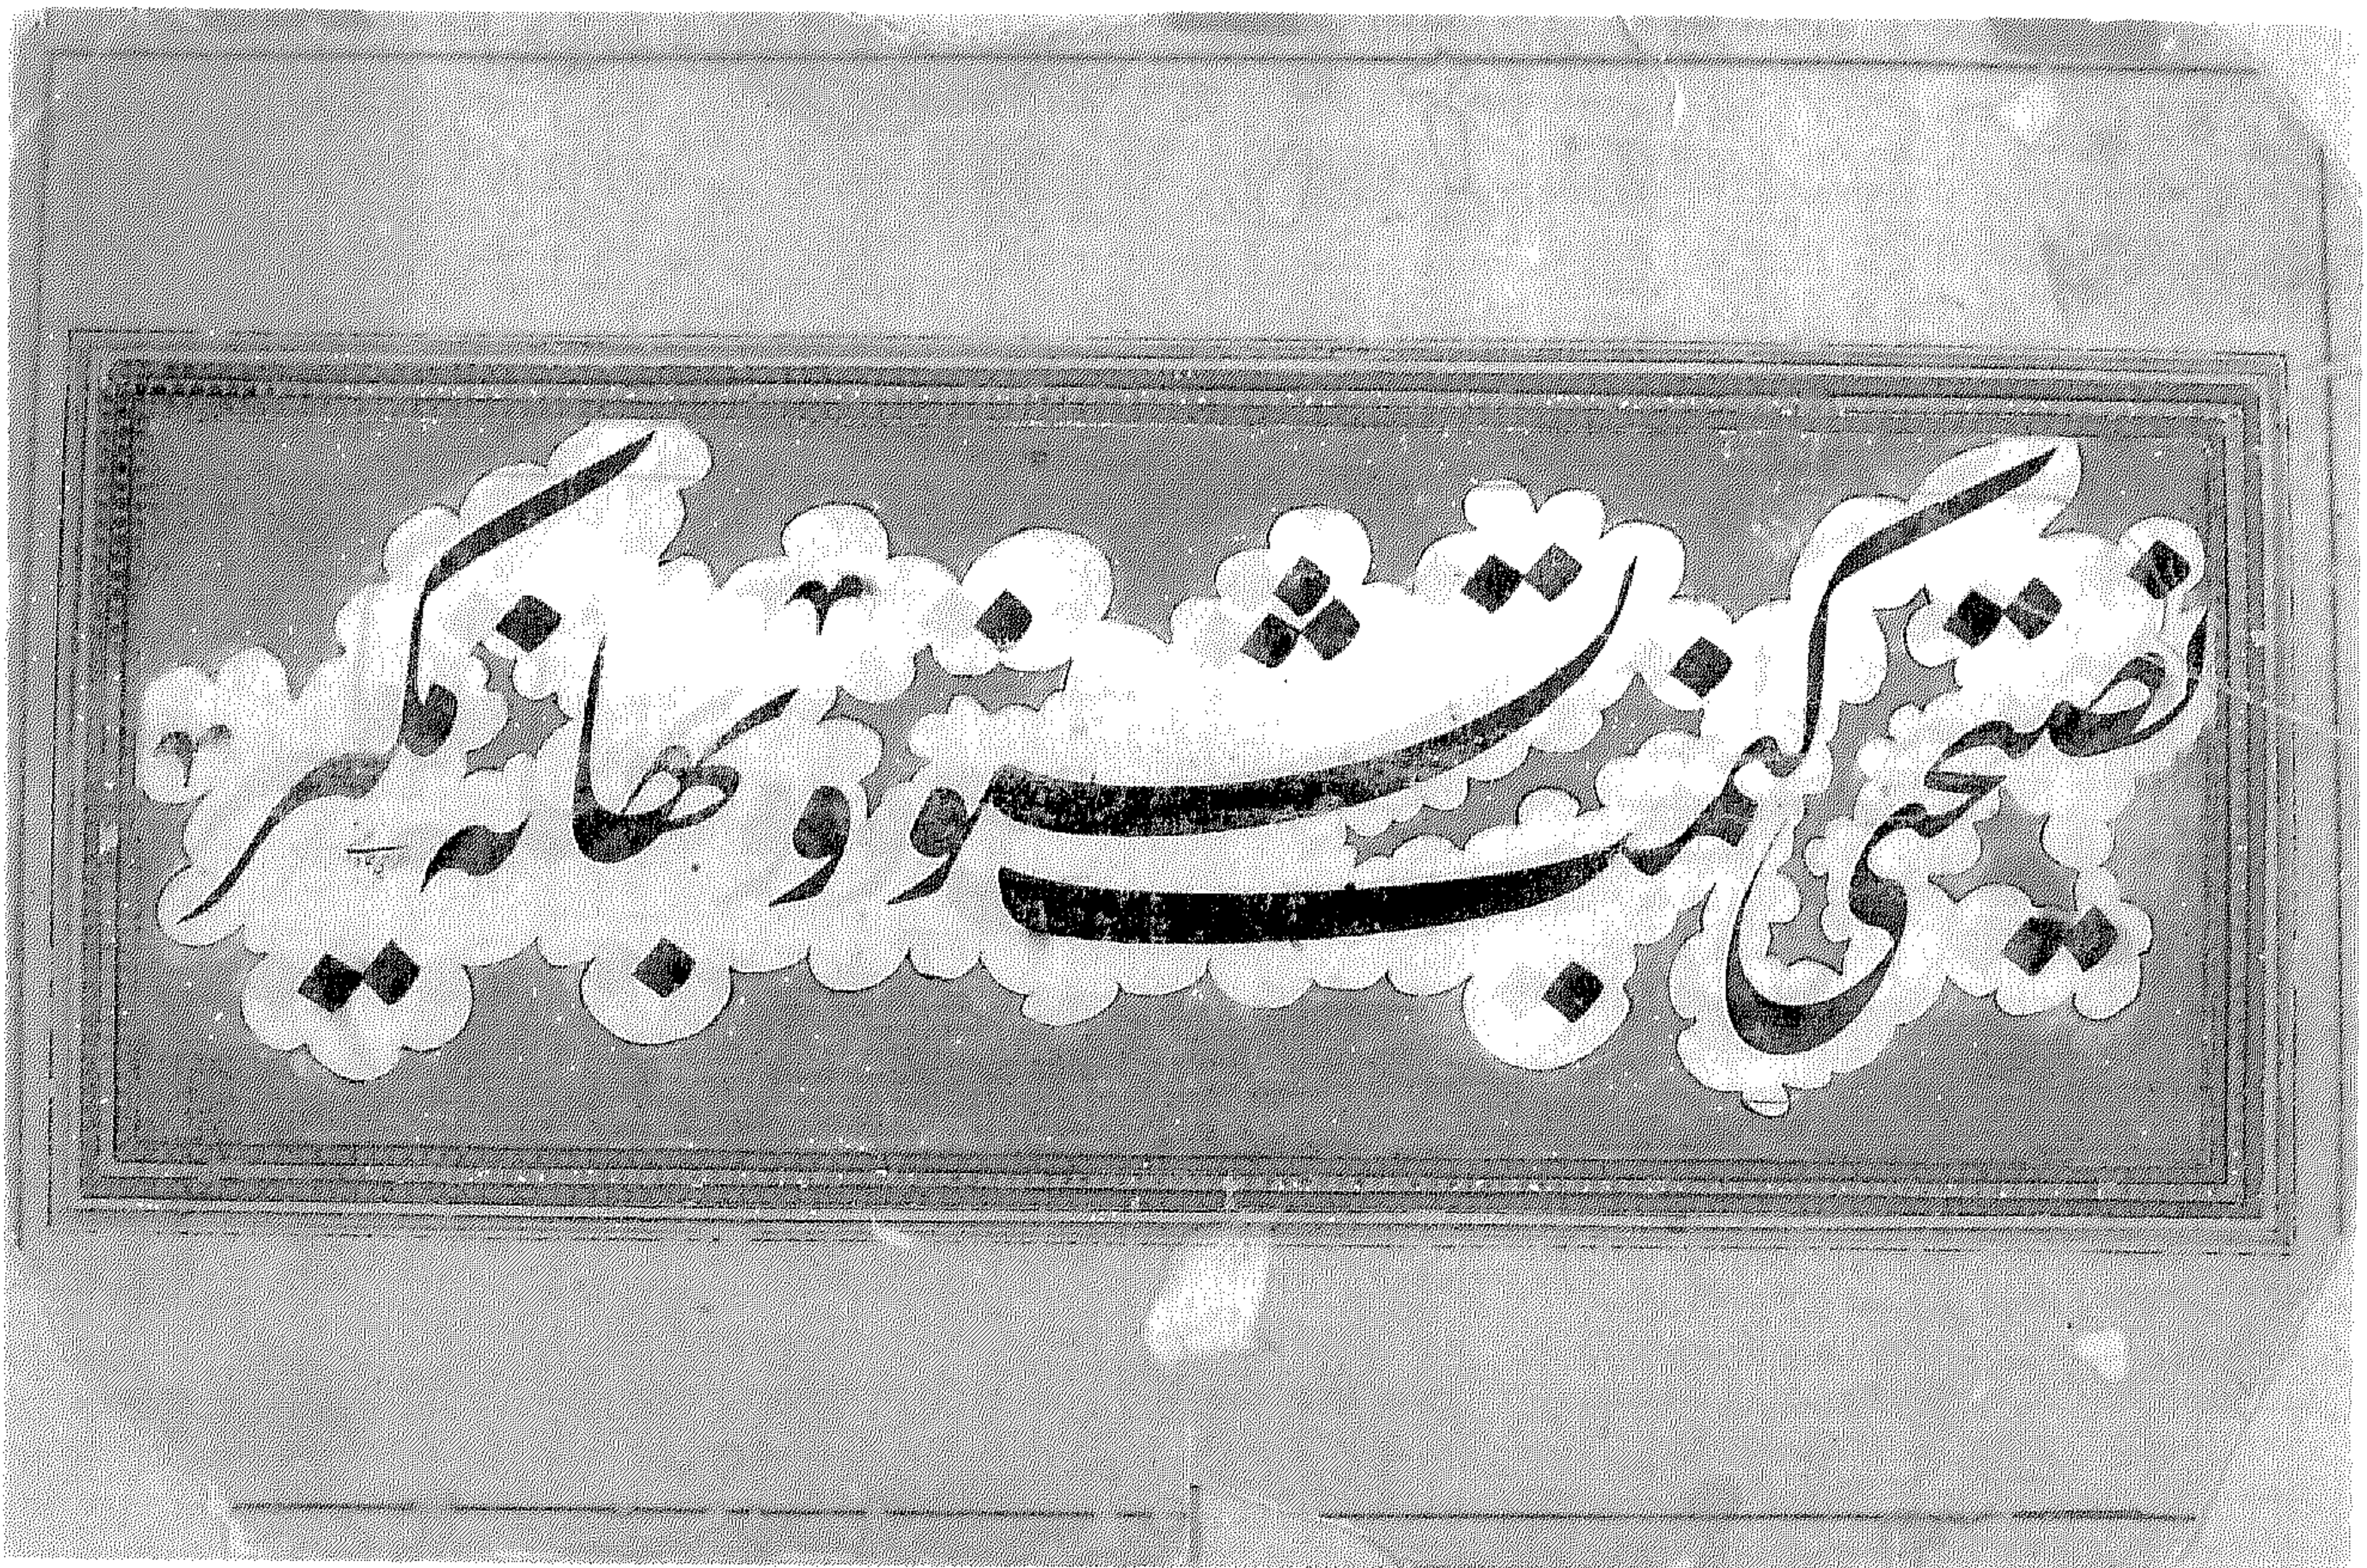 نصیحتی کنمت بشنو و بخاطر گیر